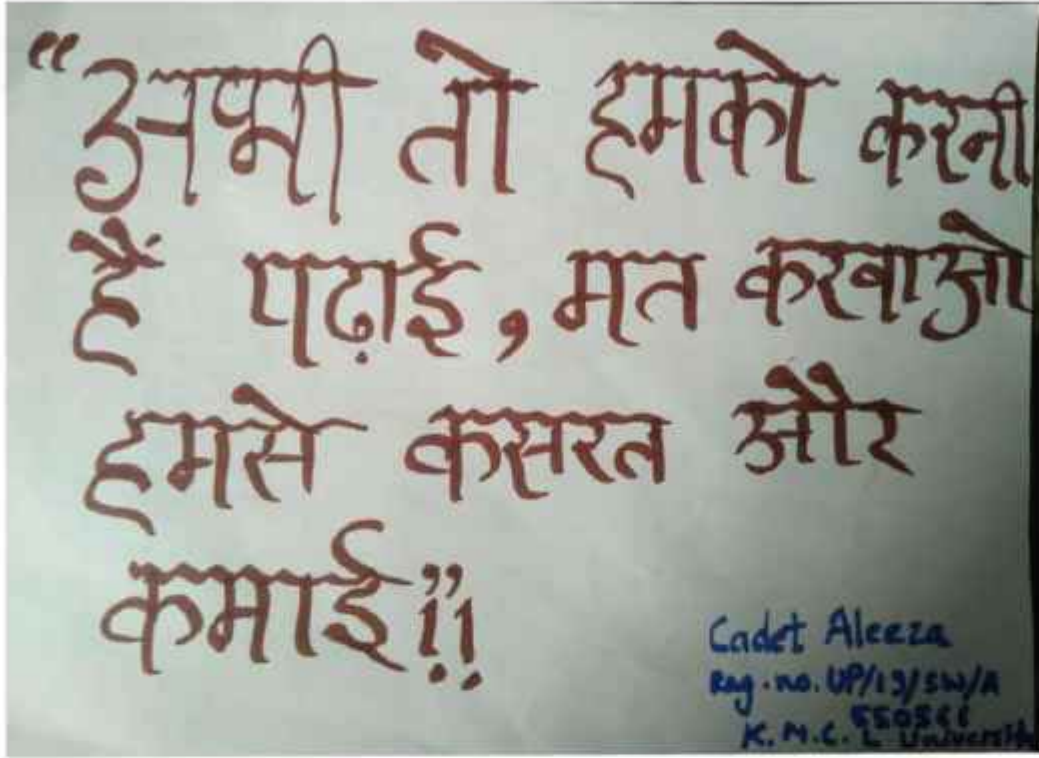 “अभी तो हमको करनी
हैं पढ़ाई, मत करवाओ
हमसे कसरत और
कमाई!!”
Cadet Aleeza
Reg. no. UP/19/SW/A
K. M. C. L University